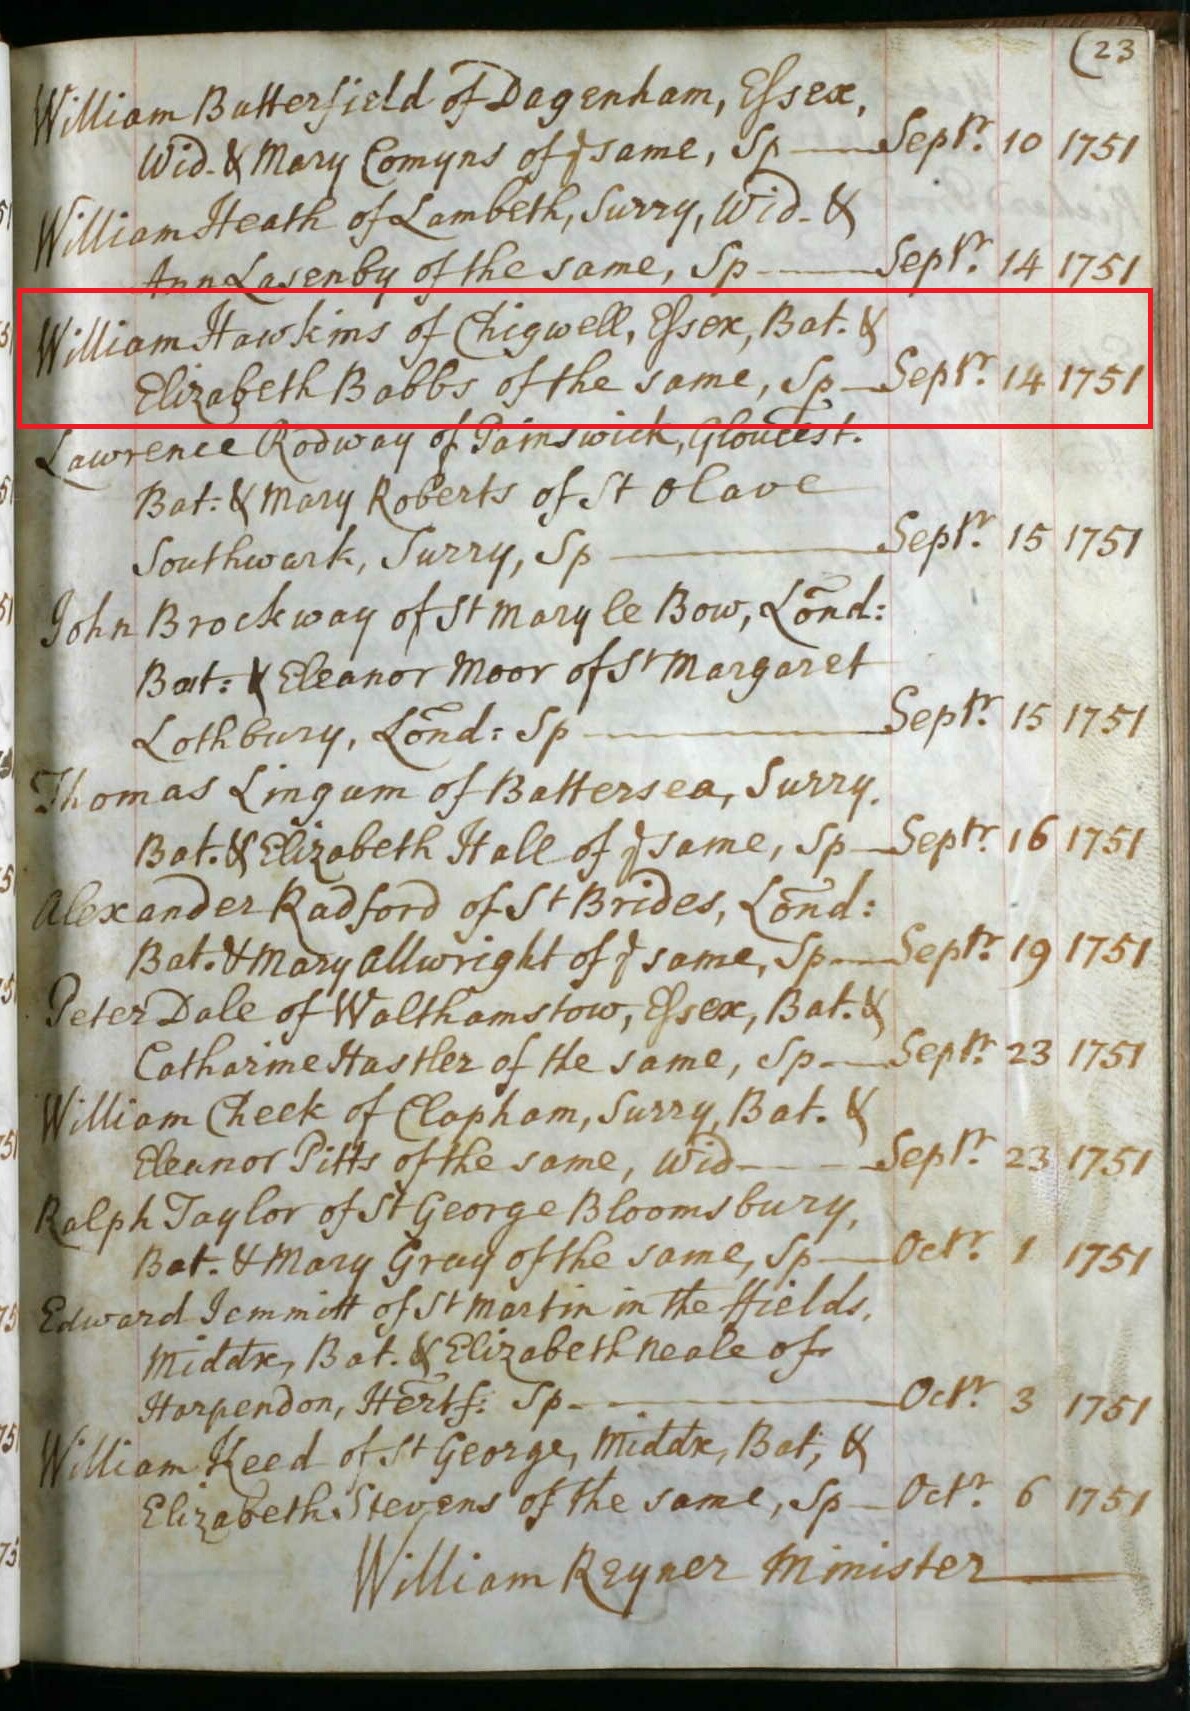 (23
William Butterfield of Dagenham, Essex,
Wid. & Mary Comyns of ye same, Sp — Septr. 10 1751
William Heath of Lambeth, Surry, Wid. &
Ann Lasenby of the same, Sp — Septr. 14 1751
William Hawkins of Chigwell, Essex, Bat. &
Elizabeth Babbs of the same, Sp — Septr. 14 1751
Lawrence Rodway of Painswick, Gloucest.
Bat: & Mary Roberts of St Olave
Southwark, Surry, Sp — Septr. 15 1751
John Brockway of St Mary le Bow, Lond:
Bat: & Eleanor Moor of St Margaret
Lothbury, Lond: Sp — Septr. 15 1751
Thomas Lingum of Battersea, Surry,
Bat. & Elizabeth Hall of ye same, Sp — Septr. 16 1751
Alexander Radford of St Brides, Lond:
Bat. & Mary Allwright of ye same, Sp — Septr. 19 1751
Peter Dale of Walthamstow, Essex, Bat. &
Catharine Hasler of the same, Sp — Septr. 23 1751
William Cheek of Clapham, Surry, Bat. &
Eleanor Pitts of the same, Wid — Septr. 23 1751
Ralph Taylor of St George Bloomsbury,
Bat. & Mary Gray of the same, Sp — Octr. 1 1751
Edward Jemmitt of St Martin in the ffields,
Middx, Bat. & Elizabeth Neale of
Harpendon, Hertf: Sp — Octr. 3 1751
William Keed of St George, Middx, Bat, &
Elizabeth Stevens of the same, Sp — Octr. 6 1751
William Reyner Minister